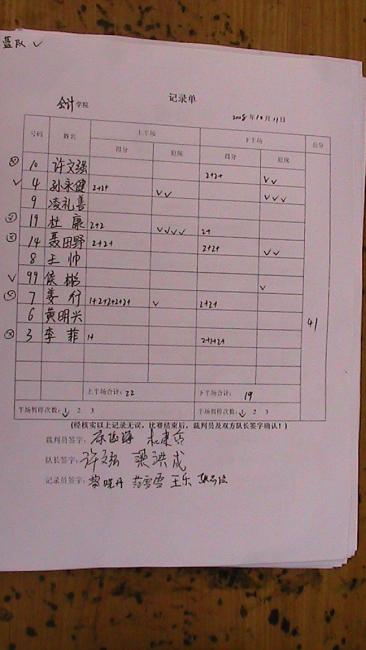 蓝队 ✓
记录单
会计学院 2008年10月11日
号码 姓名 上半场 下半场 总分
得分 犯规 得分 犯规
10 许文强 2+2+ ✓✓
✓ 4 孙永健 2+2+ ✓✓
9 凌礼喜 ✓✓✓
19 杜康 2+2 ✓✓✓✓ 2+
14 聂田野 2+2+ 2+2+ ✓✓
8 王帅
✓ 99 侯彬 ✓
7 姜行 1+2+2+2+2+ ✓ 2+2+
6 黄明兴
3 李菲 1+ 2+2+2+
41
上半场合计:22 下半场合计:19
半场暂停次数:1 2 3 半场暂停次数:1 2 3
(经核实以上记录无误,比赛结束后,裁判员及双方队长签字确认!)
裁判员签字:
队长签字:许文强 梁洪成
记录员签字:黎晓丹 王乐